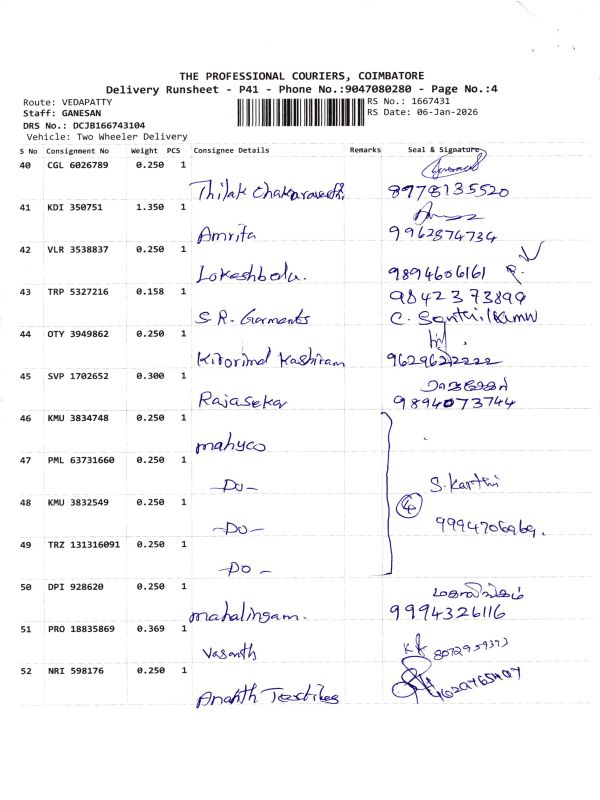 THE PROFESSIONAL COURIERS, COIMBATORE
Delivery Runsheet - P41 - Phone No.:9047080280 - Page No.:4
Route: VEDAPATTY
RS No.: 1667431
Staff: GANESAN
RS Date: 06-Jan-2026
DRS No.: DCJB166743104
Vehicle: Two Wheeler Delivery
S No Consignment No Weight PCS Consignee Details Remarks Seal & Signature
40 CGL 6026789 0.250 1
Thilak Chakaravarthi 8778135520
41 KDI 350751 1.350 1
Amrita 9962874734
42 VLR 3538837 0.250 1
Lokeshbabu. 9894606161
43 TRP 5327216 0.158 1 9842373899
S.R. Garments C. Senthilkumar
44 OTY 3949862 0.250 1
Kirorimal Kashiram
45 SVP 1702652 0.300 1 ராஜசேகர்
Rajasekar 9894073744
46 KMU 3834748 0.250 1
mahyco
47 PML 63731660 0.250 1
-Do- S. Karthi
48 KMU 3832549 0.250 1 4
-Do- 9994706969.
49 TRZ 131316091 0.250 1
-Do-
50 DPI 928620 0.250 1 மகாலிங்கம்
mahalingam. 9994326116
51 PRO 18835869 0.369 1
Vasanth 8072959373
52 NRI 598176 0.250 1
Ananth Textiles